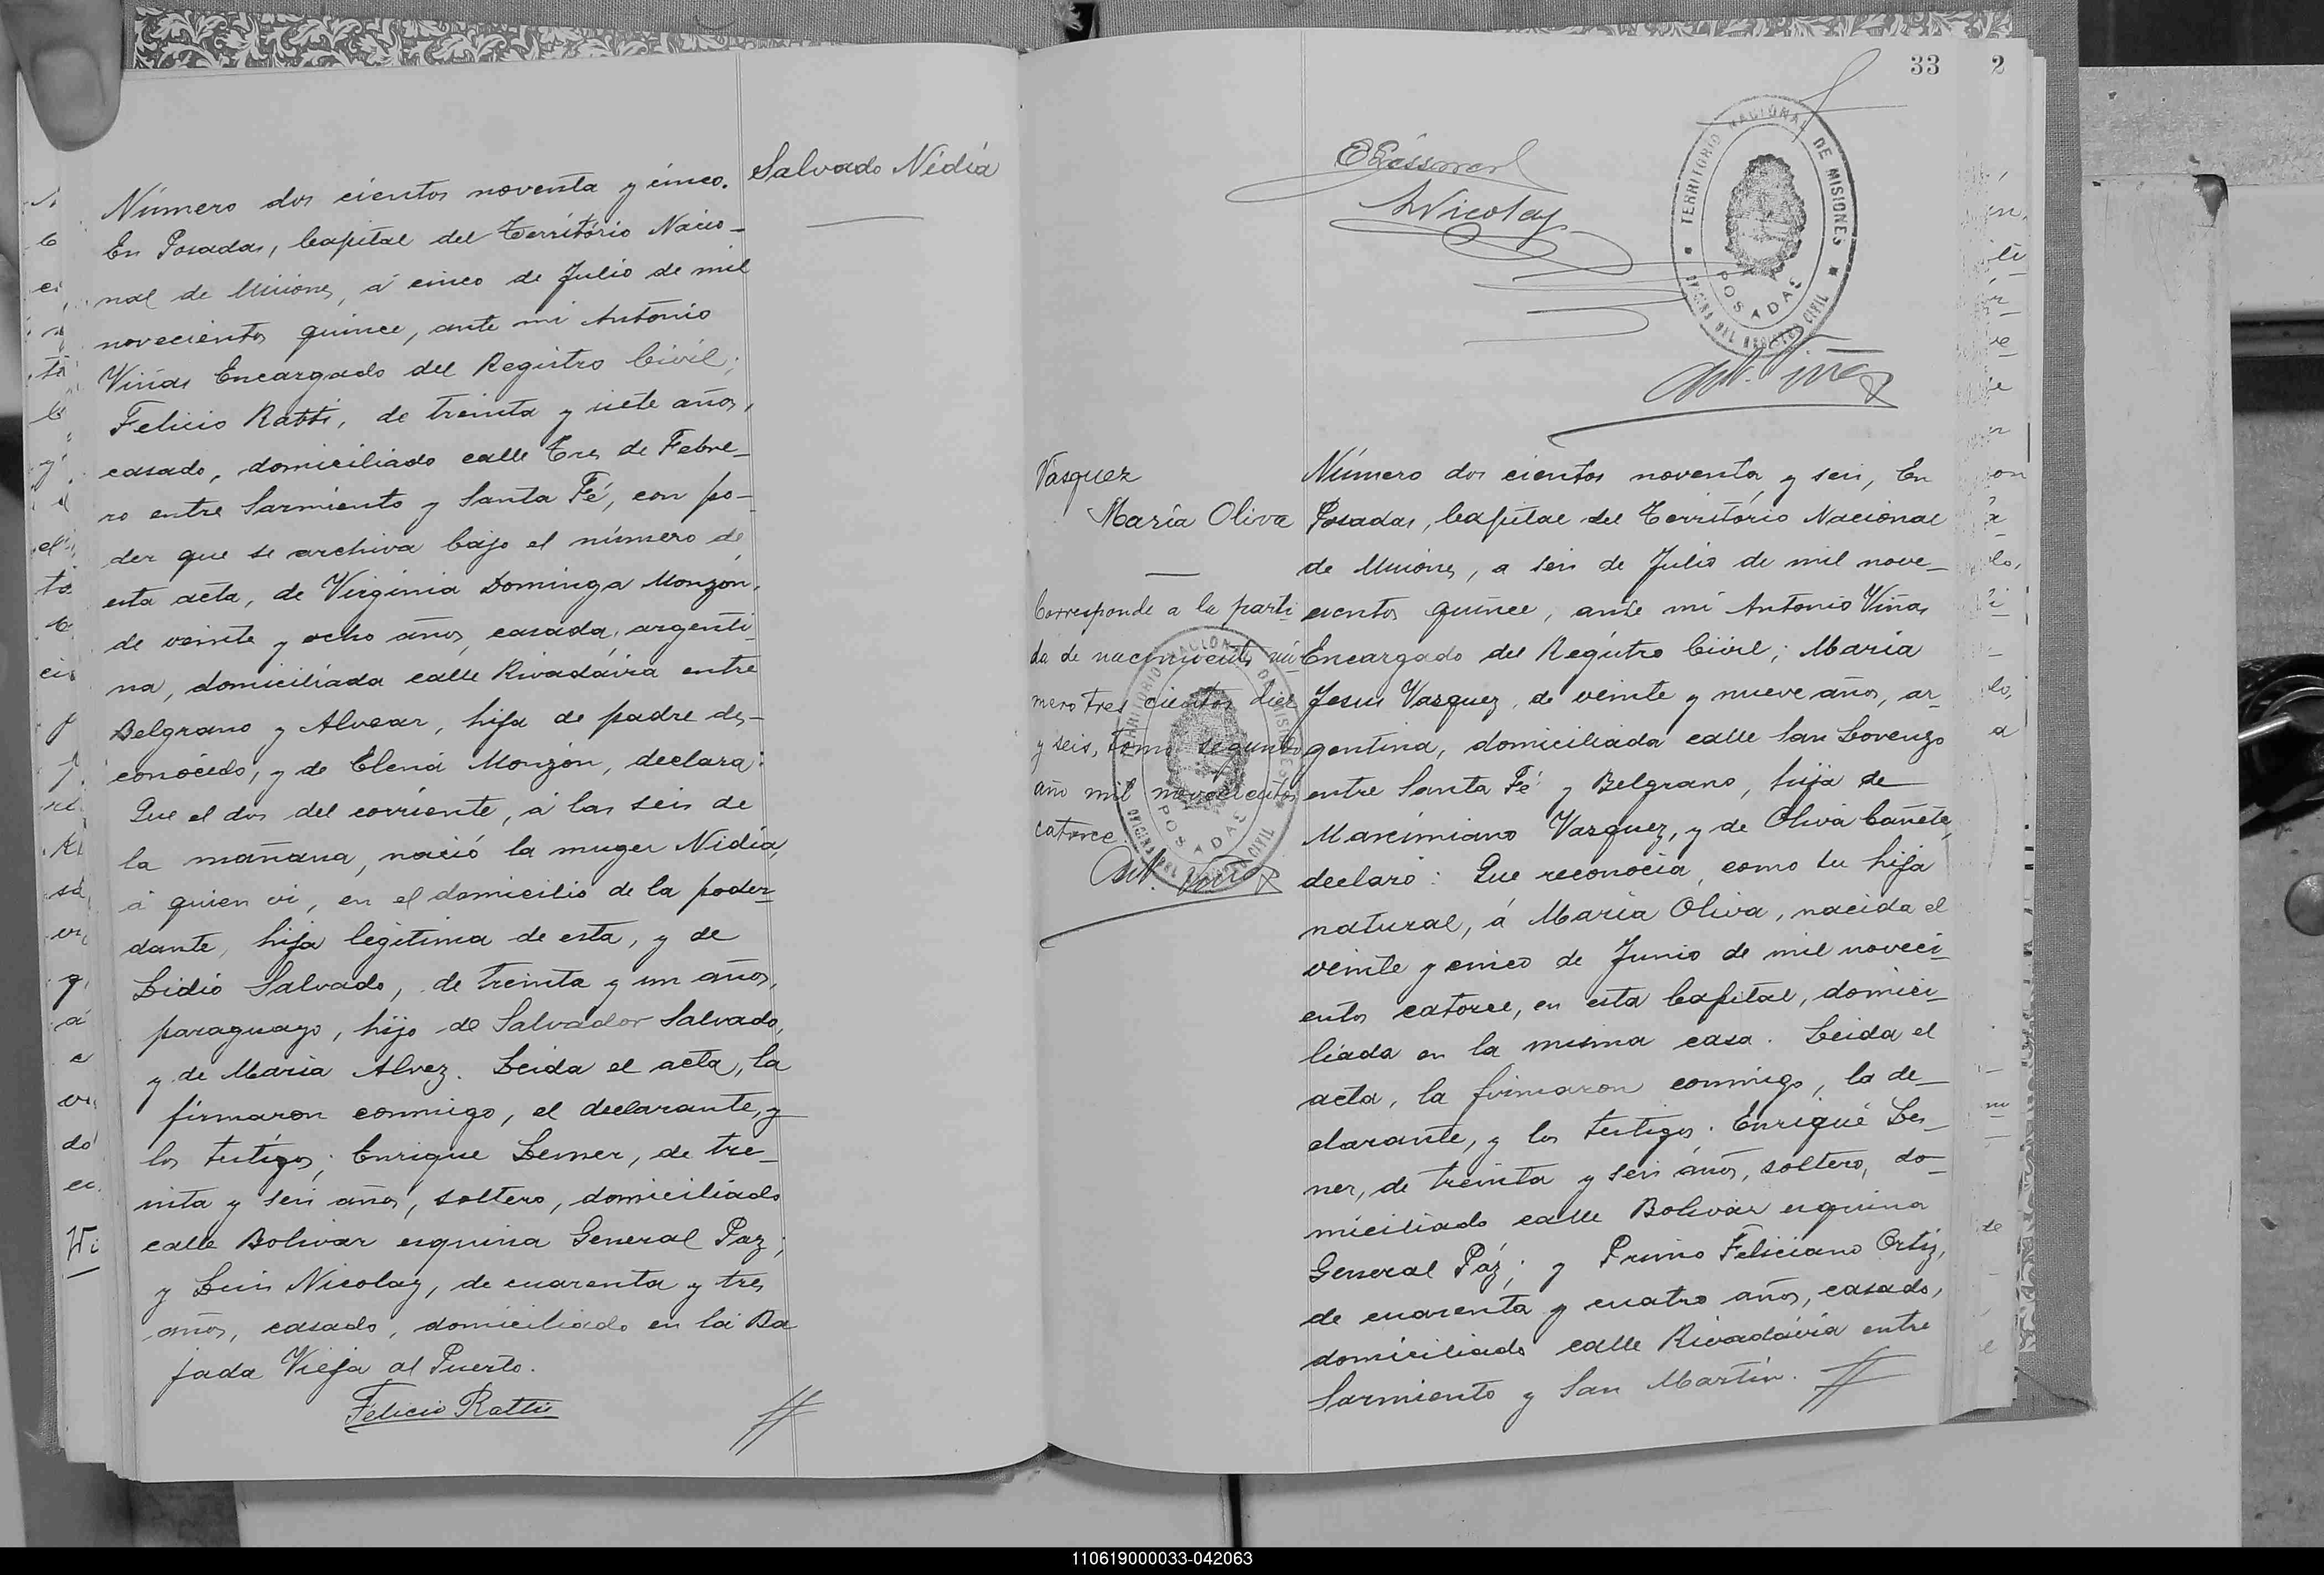 Salvado Nidia
Número dos cientos noventa y cinco.
En Posadas, Capital del Território Nacio-
nal de Misiones, á cinco de Julio de mil
novecientos quince, ante mi Antonio
Viñas Encargado del Registro Civil;
Felicio Ratti, de treinta y siete años,
casado, domiciliado calle Tres de Febre-
ro entre Sarmiento y Santa Fé, con po-
der que se archiva bajo el número de
esta acta, de Virginia Dominga Monzón,
de veinte y ocho años, casada, argenti-
na, domiciliada calle Rivadávia entre
Belgrano y Alvear, hija de padre des-
conócido, y de Elena Monzón, declara:
Que el dos del corriente, á las seis de
la mañana, nació la muger Nidia,
á quien vi, en el domicilio de la poder-
dante, hija legitima de esta, y de
Lidio Salvado, de treinta y un años,
paraguayo, hijo de Salvador Salvado,
y de Maria Alvez. Leida el acta, la
firmaron conmigo, el declarante, y
los testigos; Enrique Lesner, de tre-
inta y seis años, soltero, domiciliado
calle Bolivar esquina General Paz;
y Luis Nicolay, de cuarenta y tres
años, casado, domiciliado en la Ba
jada Vieja al Puerto.
Felicio Ratti
33
2
Nicolay
TERRITORIO NACIONAL DE MISIONES
OFICINA DEL REGISTRO CIVIL
POSADAS
Ant. Viñas
Vasquez
María Oliva
Corresponde a la parti
da de nacimiento nú
mero tres cientos diez
y seis, tomo segundo
año mil novecientos
catorce.
TERRITORIO NACIONAL DE MISIONES
OFICINA DEL REGISTRO CIVIL
POSADAS
Ant. Viñas
Número dos cientos noventa y seis, En
Posadas, Capital del Território Nacional
de Misiones, a seis de Julio de mil nove-
cientos quince, ante mí Antonio Viñas
Encargado del Registro Civil; María
Jesus Vasquez, de veinte y nueve años, ar-
gentina, domiciliada calle San Lorenzo
entre Santa Fé y Belgrano, hija de
Marcimiano Vazquez, y de Oliva Cañete,
declaró: Que reconocia, como su hija
natural, á María Oliva, nacida el
veinte y cinco de Junio de mil noveci-
entos catorce, en esta Capital, domici-
liada en la misma casa. Leida el
acta, la firmaron conmigo, la de-
clarante, y los testigos; Enrique Les-
ner, de treinta y seis años, soltero, do-
miciliado calle Bolivar esquina
General Páz; y Primo Feliciano Ortiz,
de cuarenta y cuatro años, casado,
domiciliado calle Rivadávia entre
Sarmiento y San Martín.
110619000033-042063